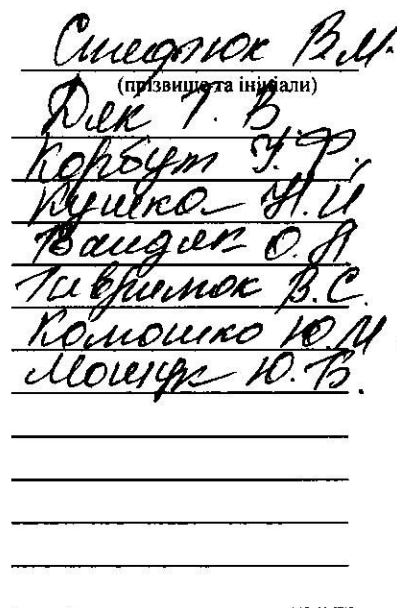 Стефнюк В.М.
(прізвище та ініціали)
Дяк Т. В.
Корбут У.Ф.
Кушко Н.Й
Вандяк О.П
Гаврилюк В.С.
Комошко Ю.М.
Мощук Ю.Б.